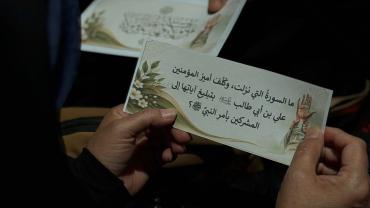 ما السورةُ التي نُزلت، وكُلّفَ أميرُ المؤمنين
علي بن أبي طالب بتبليغِ آياتها إلى
المشركين بأمر النبي ﷺ؟